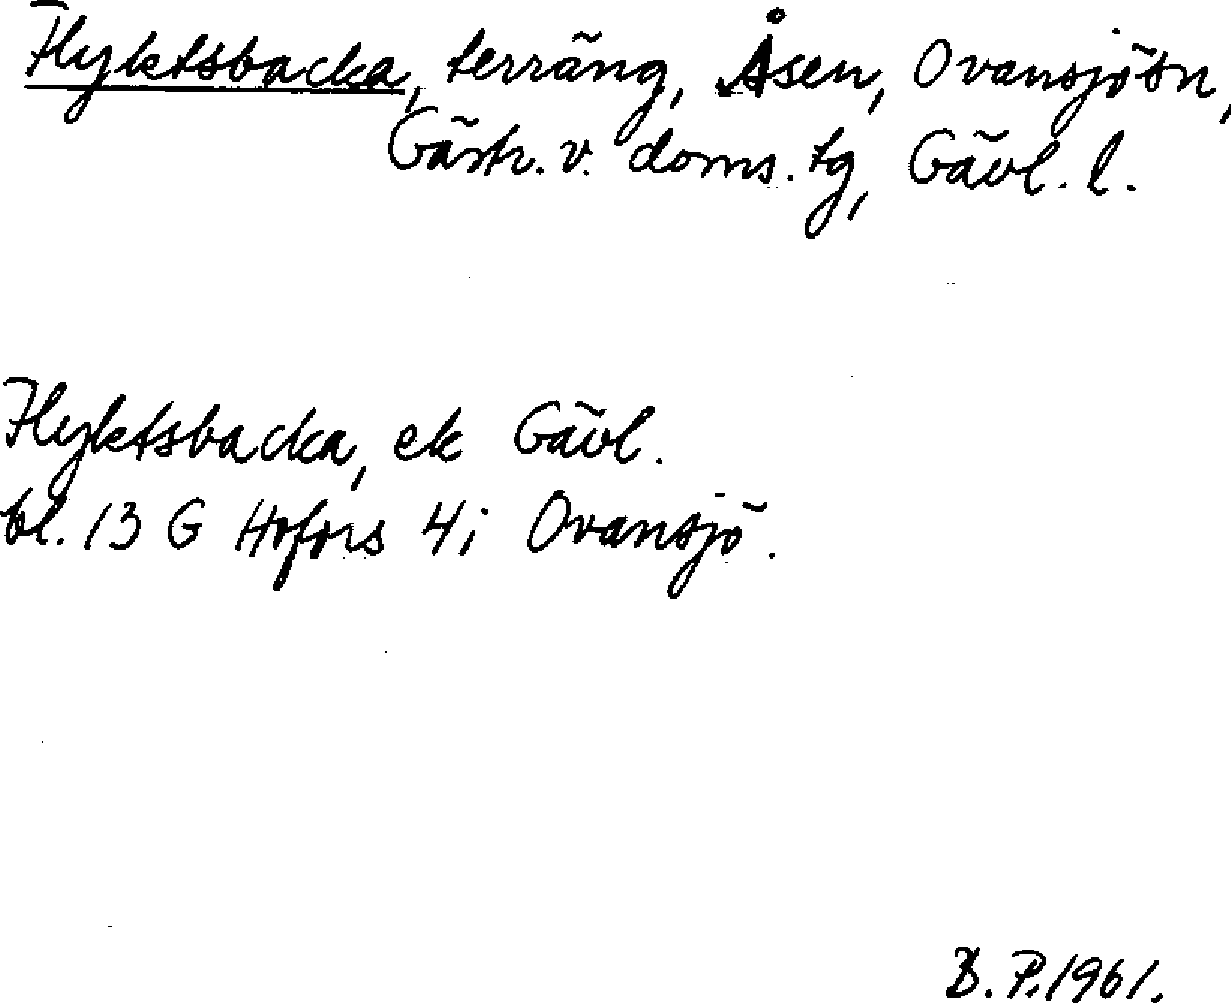 Flyktsbacka, terräng, Åsen, Ovansjö sn,
Gästr. v. doms. tg, Gävl. l.
Flyktsbacka, ek Gävl.
bl. 13 G Hofors 4i Ovansjö.
B. P. 1961.